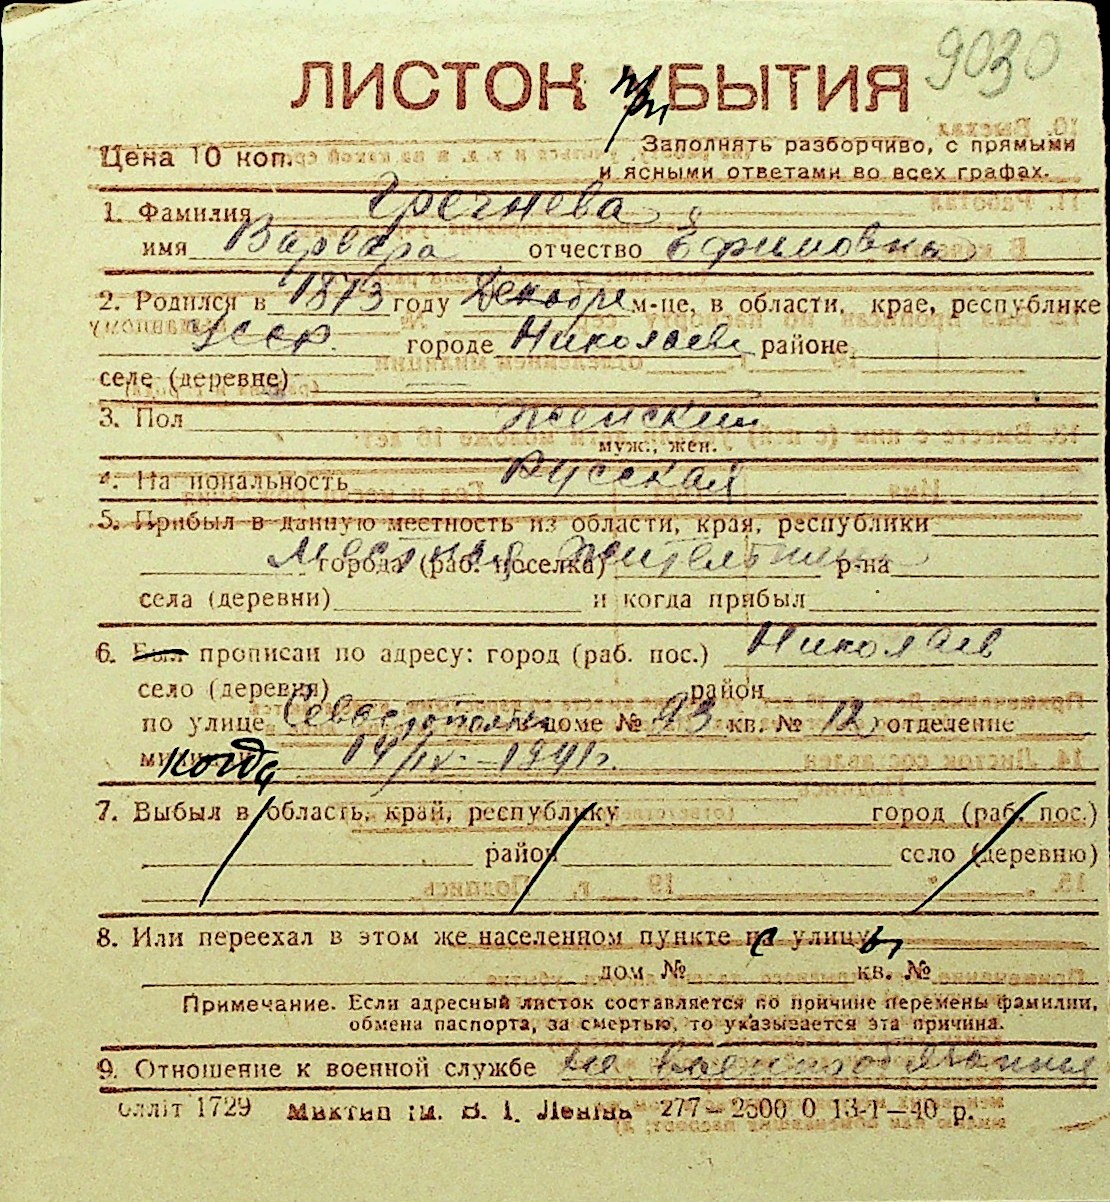 9030
ЛИСТОК УБЫТИЯ
при
Цена 10 коп.
Заполнять разборчиво, с прямыми
и ясными ответами во всех графах.
1. Фамилия Гречнева
имя Варвара отчество Ефимовна
2. Родился в 1873 году Декабре м-це, в области, крае, республике
УССР. городе Николаеве районе
селе (деревне)
3. Пол женский
муж., жен.
4. Национальность Русская
5. Прибыл в данную местность из области, края, республики
Местная жительница
города (раб. поселка) р-на
села (деревни) и когда прибыл
6. Был прописан по адресу: город (раб. пос.) Николаев
село (деревня) район
по улице Севастопольск в доме № 93 кв. № 12 отделение
когда 14/IV-1941г.
7. Выбыл в область, край, республику город (раб. пос.)
район село (деревню)
8. Или переехал в этом же населенном пункте на улицу
с ы
дом № кв. №
Примечание. Если адресный листок составляется по причине перемены фамилии,
обмена паспорта, за смертью, то указывается эта причина.
9. Отношение к военной службе не военнообязанная
1729 ім. В. І. Леніна 277—2500 0 13-I—40 р.